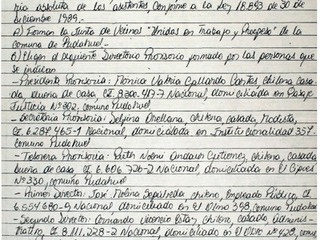 ría absoluta de los asistentes conforme a la Ley 18.893 de 30 de
diciembre 1989.-
a) Formar la Junta de Vecinos "Unidos en Trabajo y Progreso" de la
comuna de Pudahuel.
b) Eligen el siguiente Directorio Provisorio formado por las personas que
se indican
- Presidenta Provisoria: Mónica Valeria Gallardo Cortés chilena casa
da, dueña de casa CI 8.200.417-7 Nacional, domiciliada en Pasaje
Nº302, comuna Pudahuel.
- Secretaria Provisoria: Orellana, chilena, casada, Modista,
CI 6.287.465-1 Nacional, domiciliada en Institucionalidad 357.
comuna Pudahuel.
- Tesorera Provisoria: Edith Noemí Gutiérrez, chilena, casada
dueña de casa CI 6.606.726-2 Nacional domiciliada en El Ciprés
Nº330, comuna Pudahuel
- Primer Director: José Molina Sepúlveda chileno, Empleado Público, CI
6.554.680-9 Nacional domiciliado en El Olmo 398, comuna Pudahuel
- Segundo Director: Armando chileno, casado, Adminis-
trativo, CI 8.111.228-2 Nacional, domiciliado en El Olmo Nº428, comu